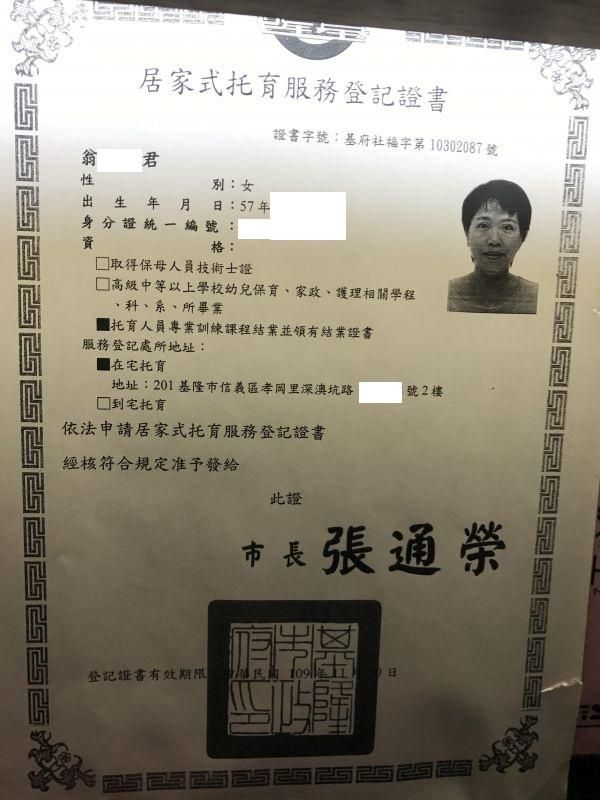 居家式托育服務登記證書
證書字號：基府社福字第10302087號
翁 君
性 別：女
出生年月日：57年
身分證統一編號：
資 格：
□取得保母人員技術士證
□高級中等以上學校幼兒保育、家政、護理相關學程
、科、系、所畢業
■托育人員專業訓練課程結業並領有結業證書
服務登記處所地址：
■在宅托育
地址：201基隆市信義區孝岡里深澳坑路 號2樓
□到宅托育
依法申請居家式托育服務登記證書
經核符合規定准予發給
此證
市長 張通榮
基隆市政府印
登記證書有效期限 民國 109年11月30日